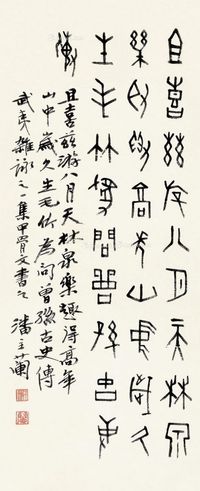 且喜茲游八月天林泉
樂趣得高年山中歲久
生毛竹為問曾孫古史
傳
且喜茲游八月天林泉樂趣得高年
山中歲久生毛竹為問曾孫古史傳
武夷雜詠之一集甲骨文書之 潘主蘭